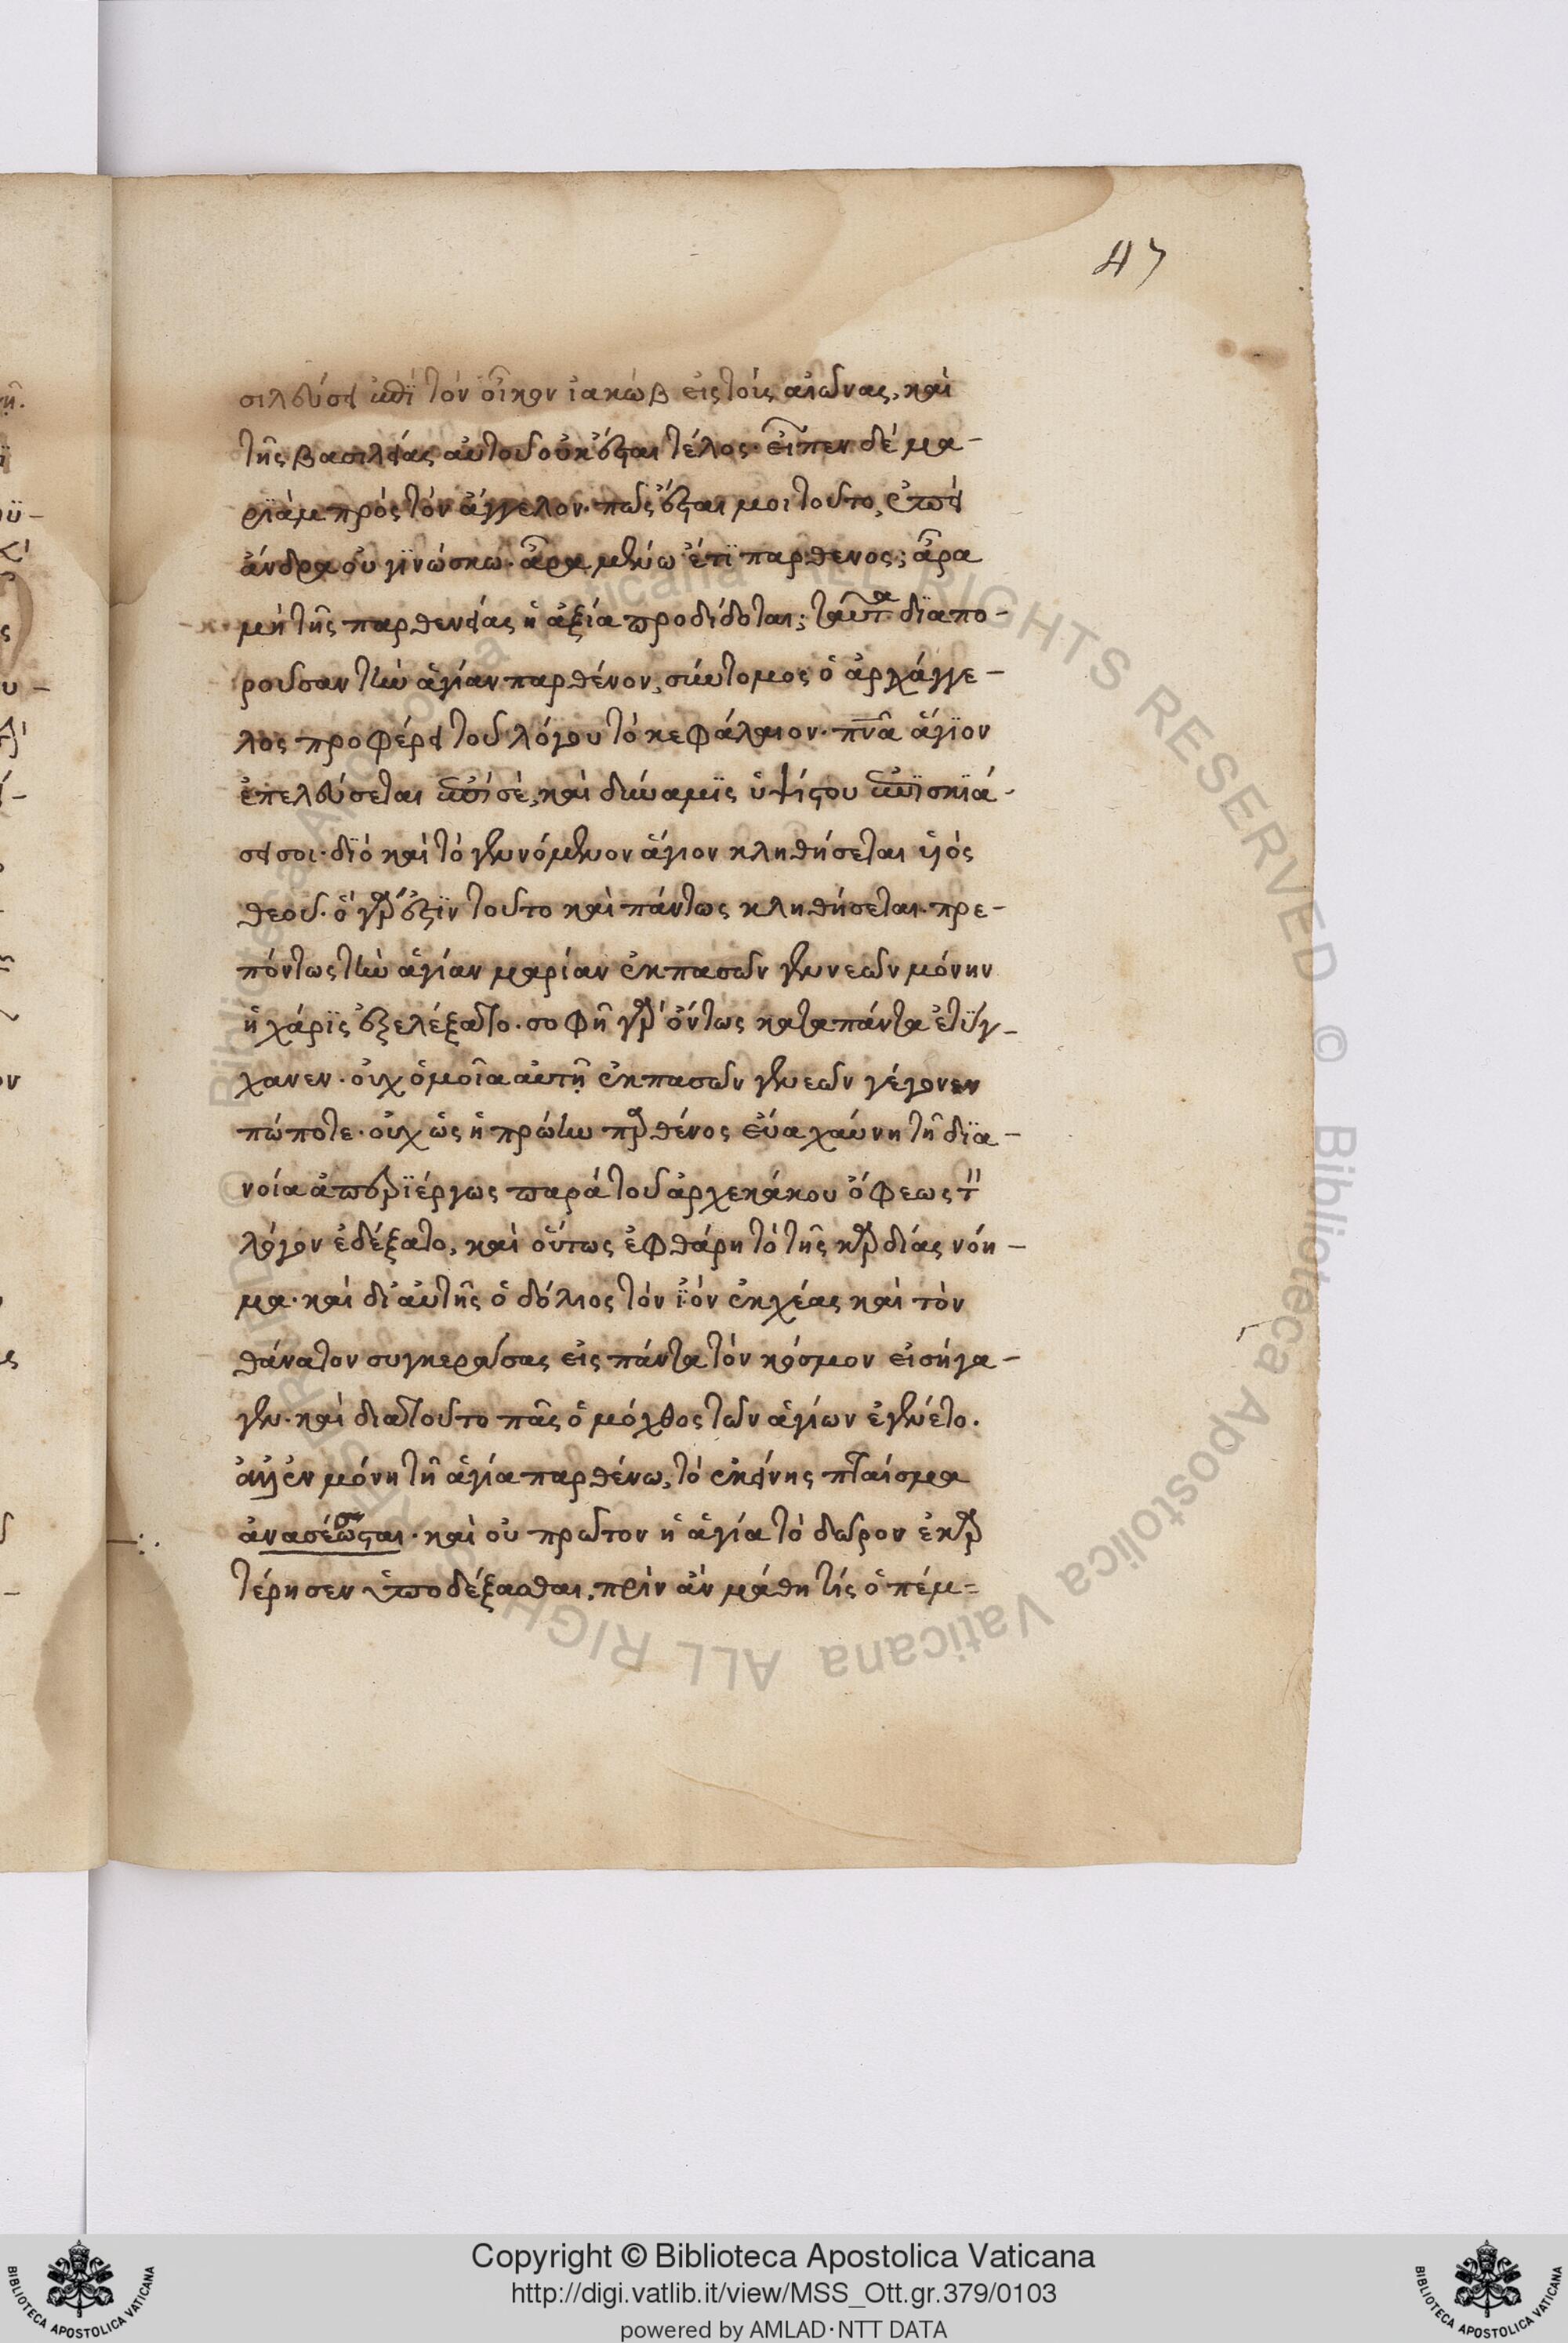 47
σιλεύσει ἐπὶ τὸν οἶκον ἰακὼβ εἰς τοὺς αἰῶνας, καὶ
τῆς βασιλείας αὐτοῦ οὐκ ἔσται τέλος· εἶπεν δὲ μα-
ριὰμ πρὸς τὸν ἄγγελον· πῶς ἔσται μοι τοῦτο, ἐπεὶ
ἄνδρα οὐ γϊνώσκω· ἆρα μένω ἔτϊ παρθενος; ἆρα
μὴ τῆς παρθενείας ἡ ἀξία προδίδοται; ταῦτα δϊαπο-
ροῦσαν τὴν ἁγίαν παρθένον, σύντομος ὁ ἀρχάγγε-
λος προφέρει τοῦ λόγου τὸ κεφάλαιον· πνᾶ ἅγϊον
ἐπελεύσεται ἐπὶ σέ, καὶ δύναμϊς ὑψίστου ἐπϊσκϊά-
σει σοι· διὸ καὶ τὸ γεννόμενον ἅγιον κληθήσεται υἱὸς
θεοῦ· ὃ γάρ ἐστϊν τοῦτο καὶ πάντως κληθήσεται· πρε-
πόντως τὴν ἁγίαν μαρίαν ἐκ πασῶν γεννεῶν μόνην
ἡ χάρϊς ἐξελέξατο· σοφὴ γὰρ ὄντως κατα πάντα ἐτύγ-
χανεν· οὐχ ὁμοῖα αὐτῇ ἐκ πασῶν γενεῶν γέγονεν
πώποτε· οὐχ ὡς ἡ πρώτην παρθένος εὔα χαύνη τῇ δϊα-
νοία ἀπερϊέργως παρὰ τοῦ ἀρχεκάκου ὄφεως τὸν
λόγον ἐδέξατο, καὶ οὕτως ἐφθάρη τὸ τῆς καρδίας νόη-
μα· καὶ δι' αὐτῆς ὁ δόλιος τὸν ϊὸν ἐκχέας καὶ τὸν
θάνατον συγκεράσας εἰς πάντα τὸν κόσμον εἰσήγα-
γεν· καὶ διατοῦτο πᾶς ὁ μόχθος τῶν ἁγίων ἐγένετο·
ἀλλ' ἐν μόνη τῇ ἁγία παρθένω, τὸ ἐκείνης πταίσμα
ἀνασέσωσται· καὶ οὐ πρῶτον ἡ ἁγία τὸ δῶρον ἐκαρ
τέρησεν ὑποδέξασθαι, πρὶν ἂν μάθη τίς ὁ πέμ-
Copyright © Biblioteca Apostolica Vaticana
http://digi.vatlib.it/view/MSS_Ott.gr.379/0103
powered by AMLAD·NTT DATA
BIBLIOTECA APOSTOLICA VATICANA
BIBLIOTECA APOSTOLICA VATICANA